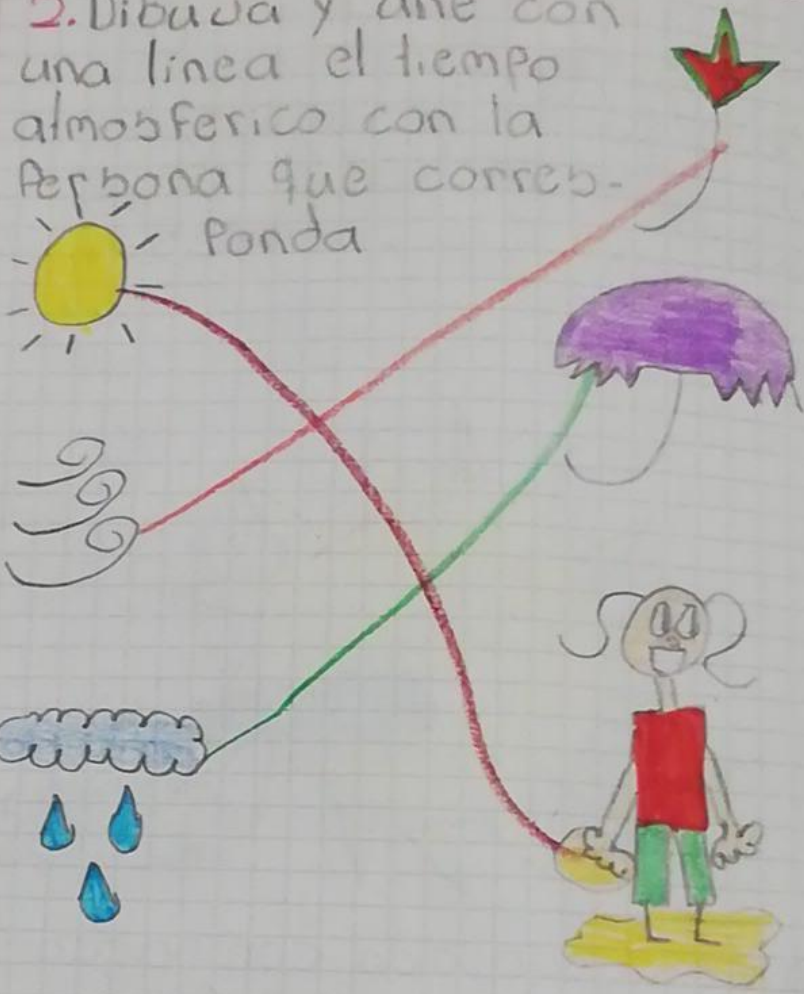 2. Dibuja y une con
una linea el tiempo
atmosferico con la
Persona que corres-
Ponda